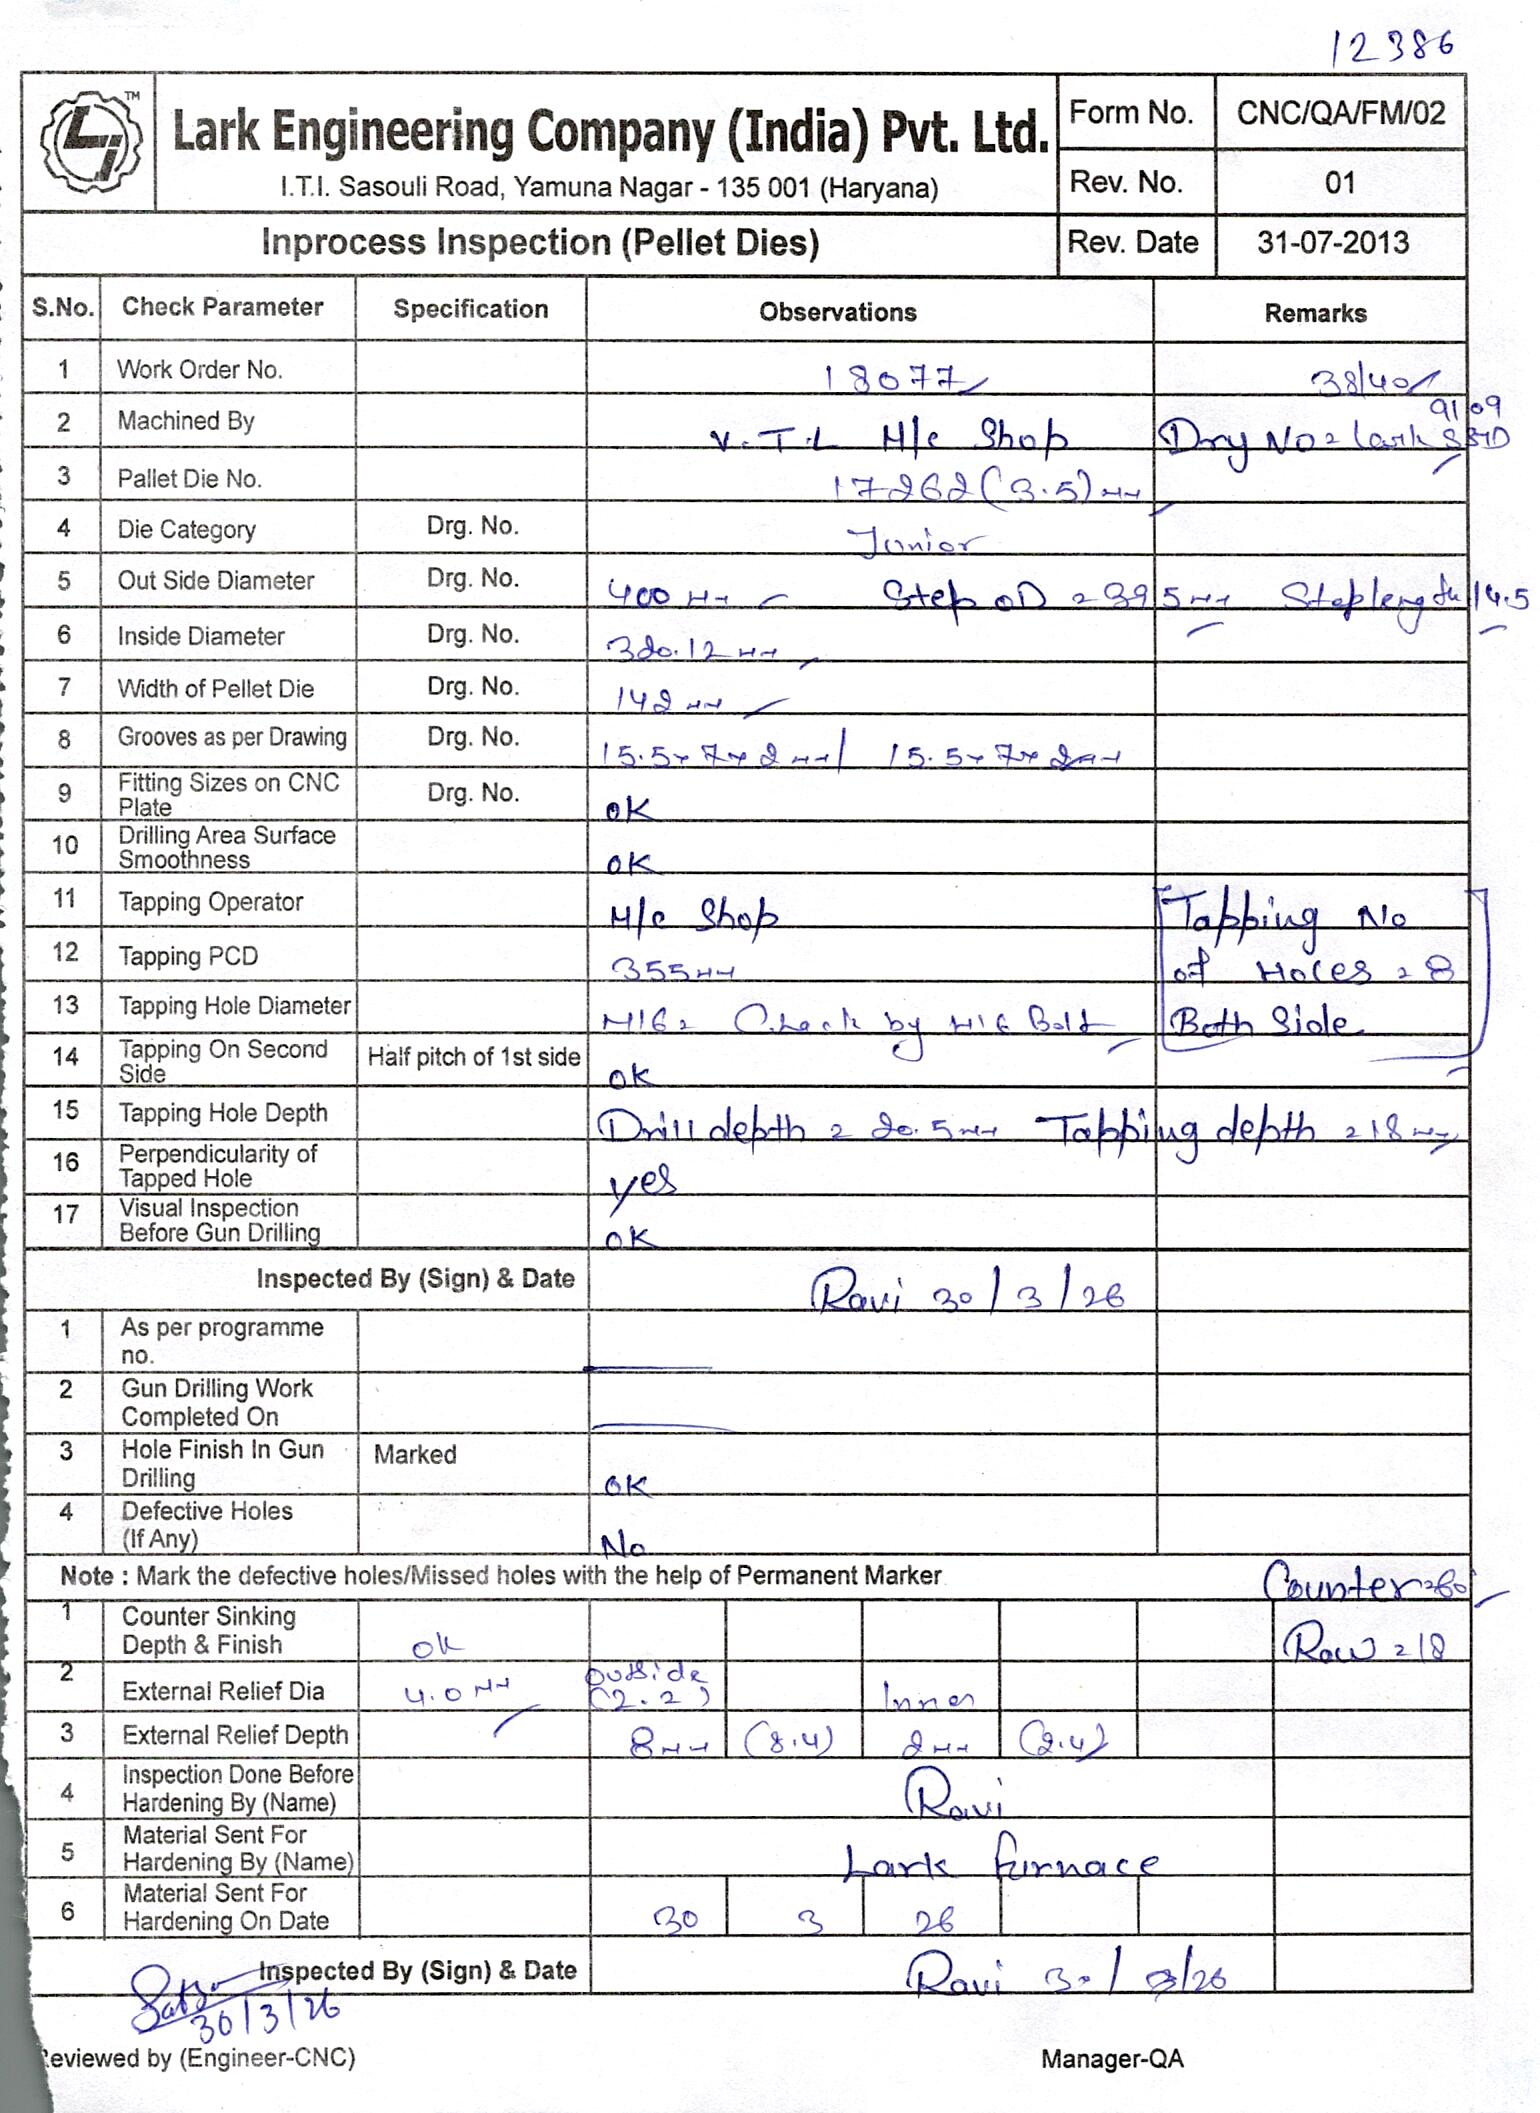 12386
TM
Lark Engineering Company (India) Pvt. Ltd.
I.T.I. Sasouli Road, Yamuna Nagar - 135 001 (Haryana)
Form No. CNC/QA/FM/02
Rev. No. 01
Inprocess Inspection (Pellet Dies) Rev. Date 31-07-2013
S.No. Check Parameter Specification Observations Remarks
1 Work Order No. 18077 38/40
2 Machined By V.T.L M/c Shop Drg No = Lark
3 Pallet Die No. 17262 (3.5) mm
4 Die Category Drg. No. Junior
5 Out Side Diameter Drg. No. 400 mm Step OD = 395 mm Step length 14.5
6 Inside Diameter Drg. No. 320.12 mm
7 Width of Pellet Die Drg. No. 142 mm
8 Grooves as per Drawing Drg. No. 15.5x7x2 mm / 15.5x7x2mm
9 Fitting Sizes on CNC Plate Drg. No. OK
10 Drilling Area Surface Smoothness OK
11 Tapping Operator M/c Shop Tapping No
12 Tapping PCD 355 mm of Holes = 8
13 Tapping Hole Diameter M16 = Check by M16 Bolt Both Side
14 Tapping On Second Side Half pitch of 1st side OK
15 Tapping Hole Depth Drill depth = 20.5mm Tapping depth = 18 mm
16 Perpendicularity of Tapped Hole yes
17 Visual Inspection Before Gun Drilling OK
Inspected By (Sign) & Date Ravi 30/3/26
1 As per programme no.
2 Gun Drilling Work Completed On
3 Hole Finish In Gun Drilling Marked OK
4 Defective Holes (If Any) No
Note : Mark the defective holes/Missed holes with the help of Permanent Marker Counter = 60
1 Counter Sinking Depth & Finish OK Row = 18
2 External Relief Dia 4.0 mm Outside (2.2) Inner
3 External Relief Depth 8mm (8.4) 2mm (2.4)
4 Inspection Done Before Hardening By (Name) Ravi
5 Material Sent For Hardening By (Name) Lark furnace
6 Material Sent For Hardening On Date 30 3 26
Inspected By (Sign) & Date Ravi 30/3/26
30/3/26
eviewed by (Engineer-CNC) Manager-QA